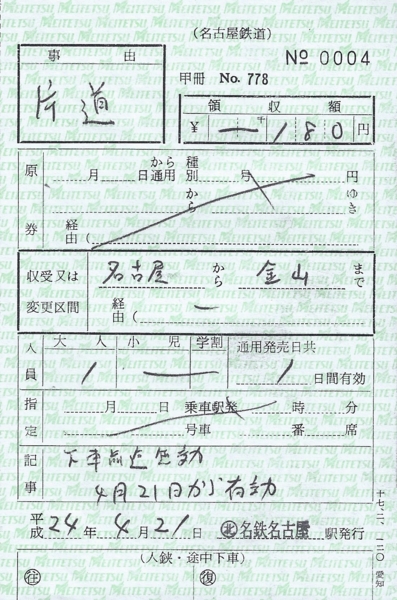 (名古屋鉄道)
№ 0004
甲冊 No. 778
事由
片道
領収額
¥ 一 180 円
原券
月 日から通用 種別 号 円
から ゆき
経由(
収受又は変更区間
名古屋 から 金山 まで
経由( ー
人員
大人 小児 学割 通用発売日共
1 1 日間有効
指定
月 日 乗車駅発 時 分
号車 番 席
記事
下車前途無効
4月21日から有効
平成 24 年 4 月 21 日 ㊋ 名鉄名古屋 駅発行
(入鋏・途中下車)
往 復
MEITETSU
愛知